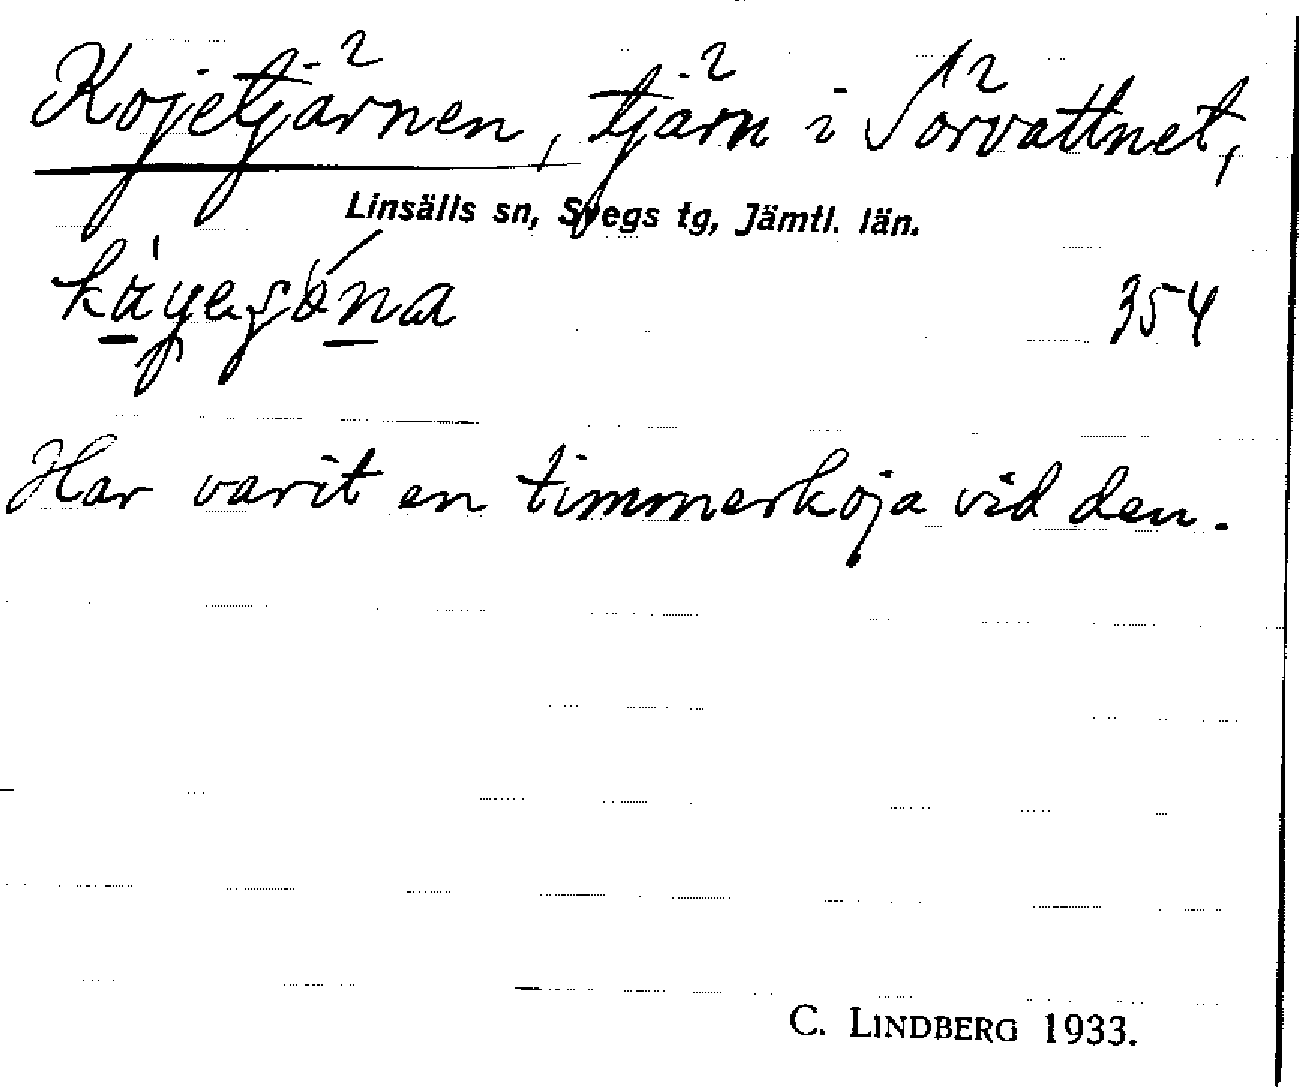 Kojetjärnen, tjärn i Sörvattnet,
Linsälls sn, Svegs tg, Jämtl. län.
354
Har varit en timmerkoja vid den.
C. LINDBERG 1933.